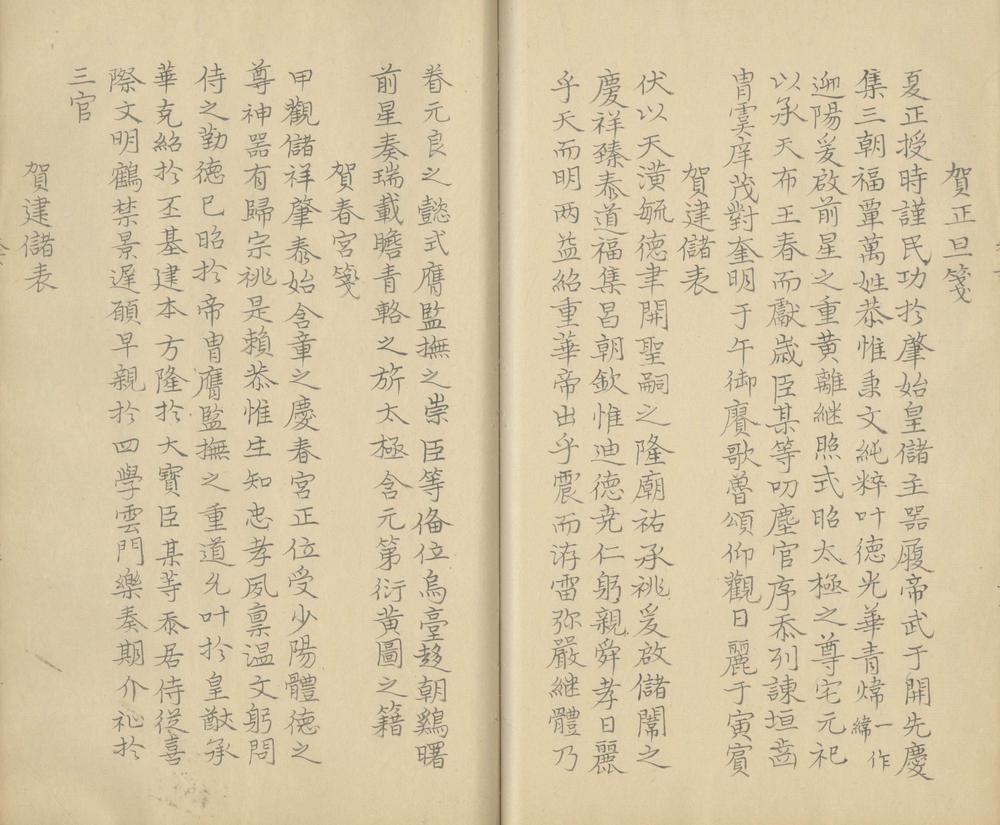 賀正旦箋
夏正授時謹民功於肇始皇儲主器履帝武于開先慶
集三朝福覃萬姓恭惟秉文純粹叶德光華青煒一作緯
迎陽爰啟前星之重黃離継照式昭太極之尊宅元祀
以承天布王春而獻歲臣某等叨塵官序忝列諫垣齒
胄虞庠茂對奎明于午御賡歌魯頌仰觀日麗于寅賓
賀建儲表
伏以天潢毓德聿開聖嗣之隆廟祐承祧爰啟儲闈之
慶祥臻泰道福集昌朝欽惟迪德堯仁躬親舜孝日麗
乎天而明两益紹重華帝出乎震而洊雷弥嚴継體乃
眷元良之懿式膺監撫之崇臣等俻位烏臺趍朝鷄曙
前星奏瑞載瞻青輅之旂太極含元第衍黃圖之籍
賀春宮箋
甲觀儲祥肇泰始含章之慶春宮正位受少陽體德之
尊神器有歸宗祧是賴恭惟生知忠孝夙禀温文躬問
侍之勤德已昭於帝胄膺監撫之重道允叶於皇猷承
華克紹於丕基建本方隆於大寶臣某等忝居侍從喜
際文明鶴禁景遲願早親於四學雲門樂奏期介祉於
三宮
賀建儲表